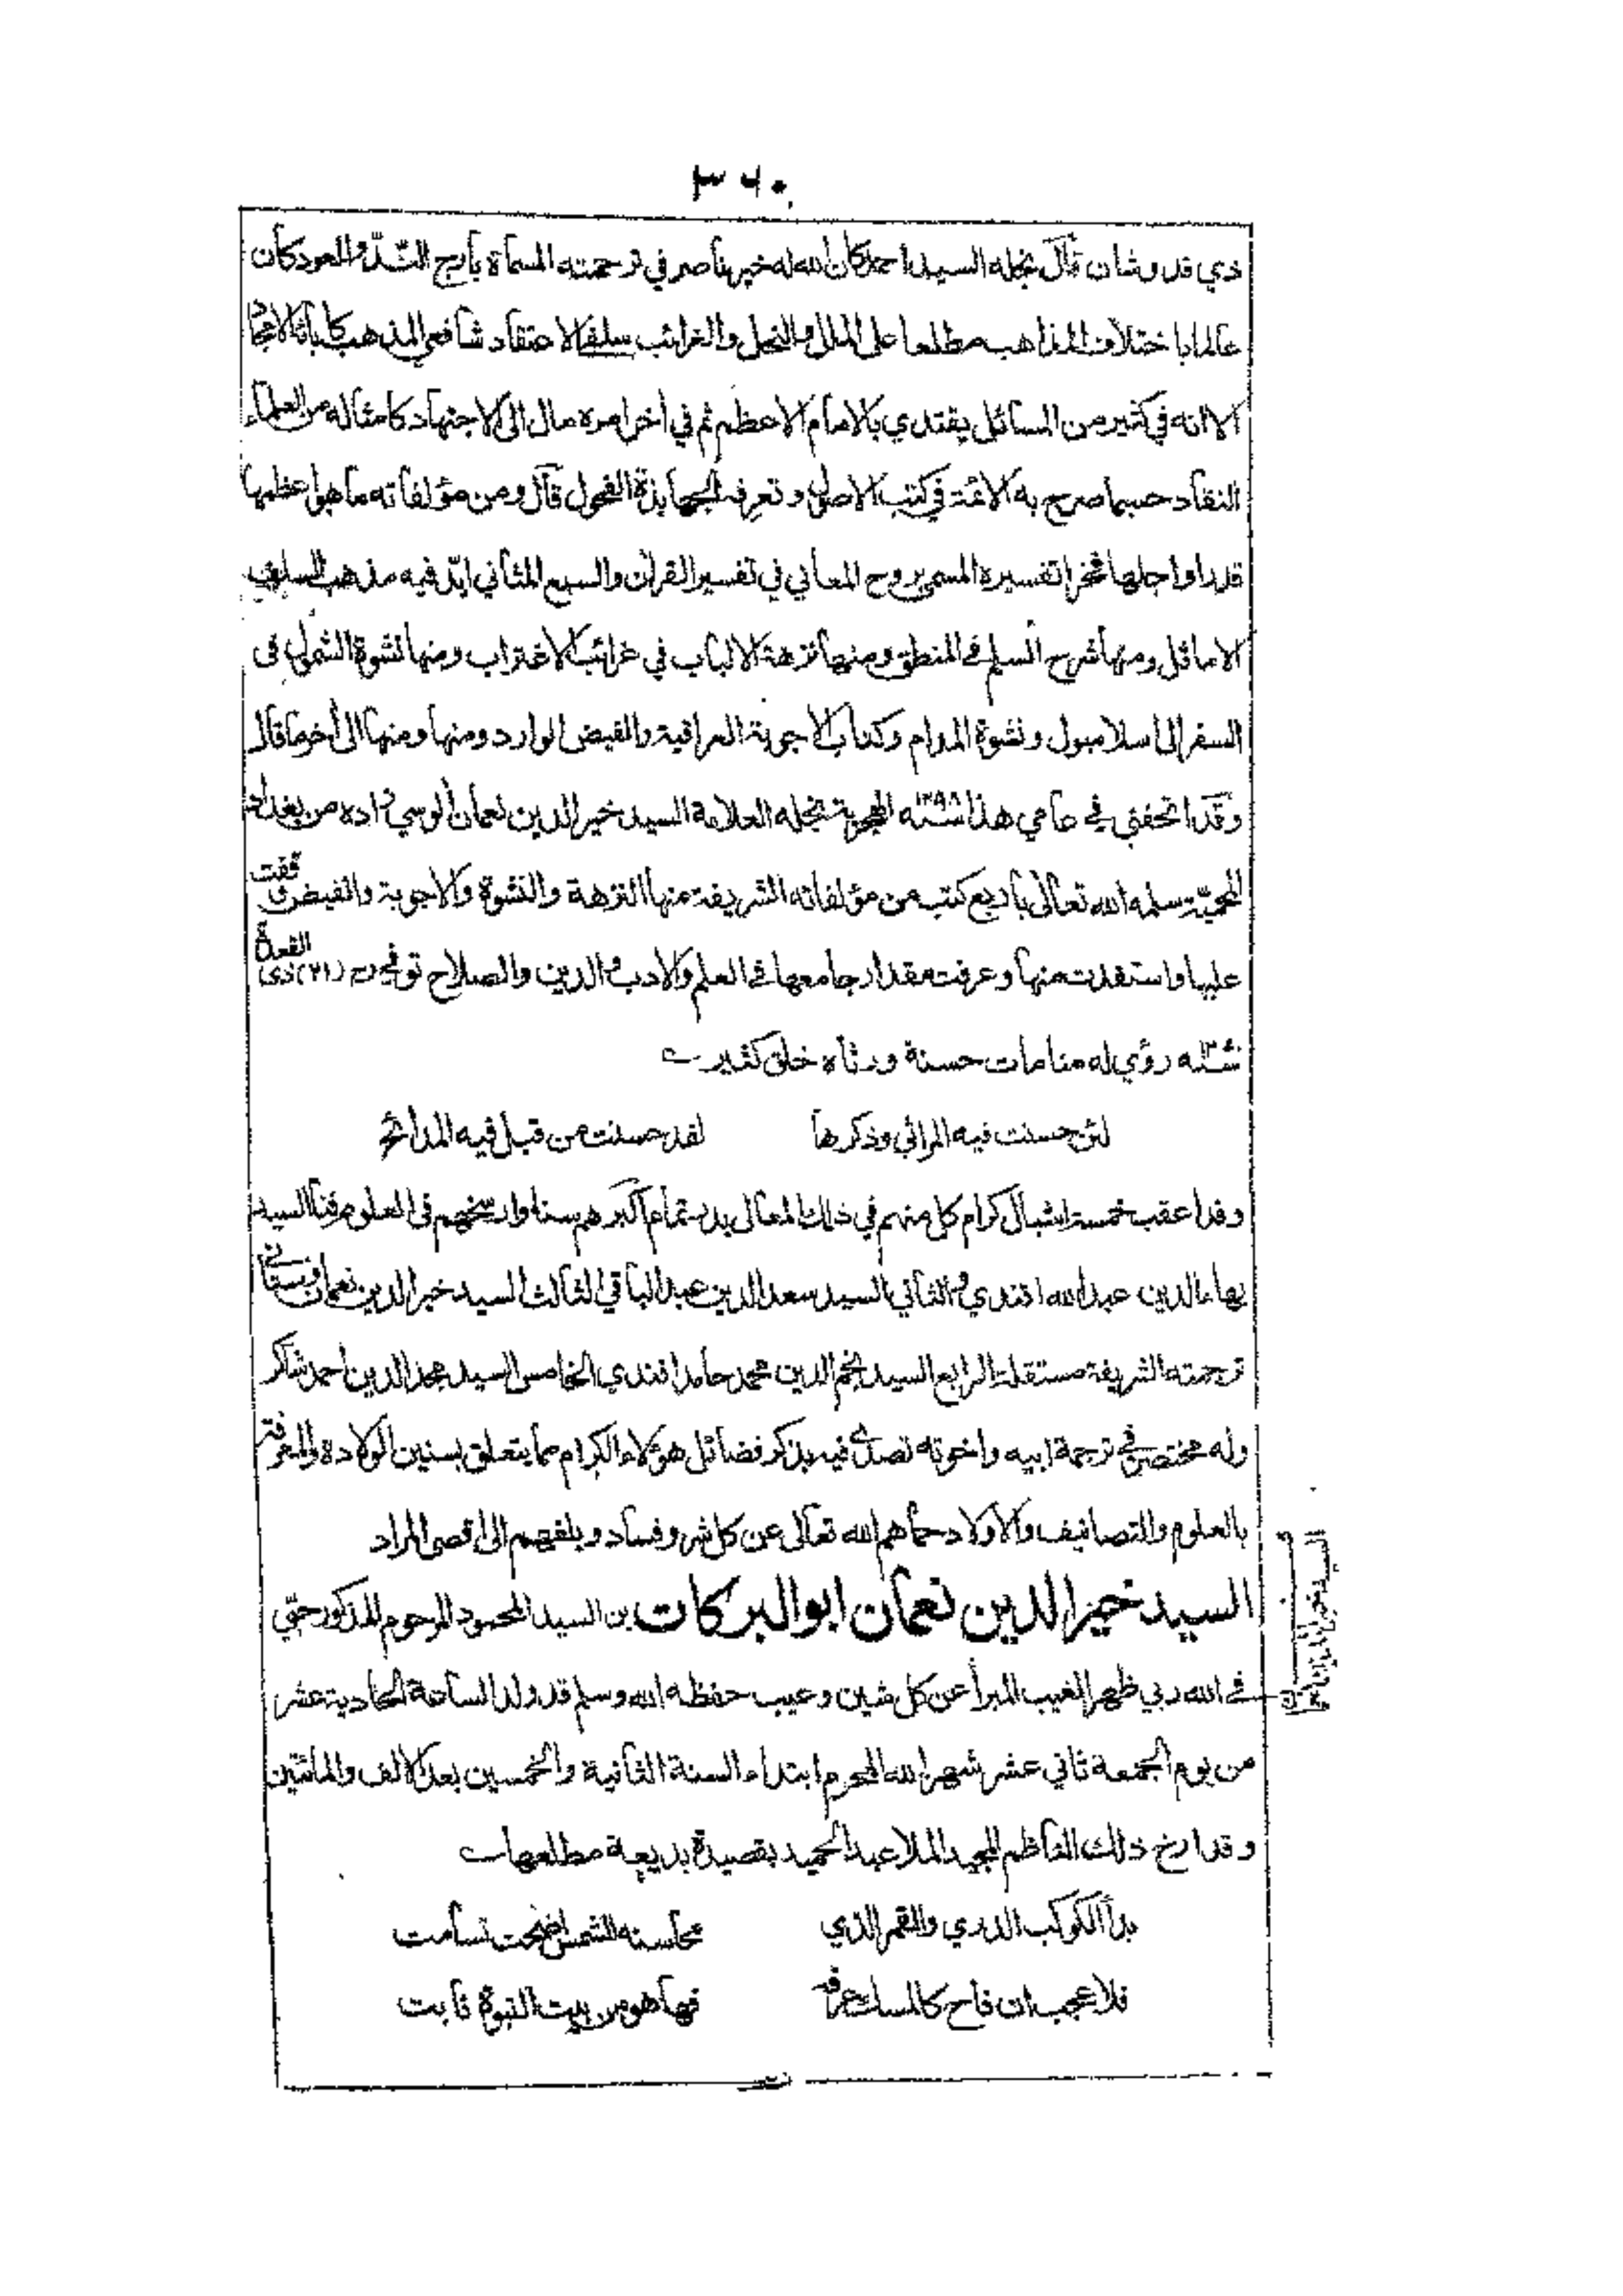 ٣٦٠
ذي قدر وشان قال نجله السيد احمد كان الله له خير ناصر في ترجمته المسماة بأرج الند والعود كان
عالما باختلاف المذاهب مطلعا على الملل والنحل والغرائب سلفي الاعتقاد شافعي المذهب كابائه الامجاد
الا انه في كثير من المسائل يقتدي بالامام الاعظم ثم في أخر امره مال الى الاجتهاد كامثاله من العلماء
النقاد حسبما صرح به الائمة في كتب الاصول وتعرفه الجهابذة الفحول قال ومن مؤلفاته ما هو اعظمها
قدرا واجلها فخرا تفسيره المسمى بروح المعاني في تفسير القرآن والسبع المثاني ايد فيه مذهب السلف
الاماثل ومنها شرح السلم في المنطق ومنها نزهة الالباب في غرائب الاغتراب ومنها نشوة الشمول في
السفر الى اسلامبول ونشوة المدام وكتاب الاجوبة العراقية والفيض الوارد ومنها ومنها الى أخر ما قال
وقد اتحفني في عامي هذا سنة ١٢٩٨ الهجرية نجله العلامة السيد خير الدين نعمان ألوسي زاده من بغداد
المحمية سلمه الله تعالى بأربع كتب من مؤلفاته الشريفة منها النزهة والنشوة والاجوبة والفيض وقفت
عليها واستفدت منها وعرفت مقدار جامعها في العلم والادب والدين والصلاح توفي رح (٢١) ذي القعدة
سنة رؤي له منامات حسنة ورثاه خلق كثير
لئن حسنت فيه المراثي وذكرها لقد حسنت من قبل فيه المدائح
وقد اعقب خمسة اشبال كرام كل منهم في ذلك المعالي بدر تمام اكبرهم سنا وارسخهم في العلوم فنا السيد
بهاء الدين عبد الله افندي والثاني السيد سعد الدين عبد الباقي الثالث السيد خير الدين نعمان وستاتي
ترجمته الشريفة مستقلة الرابع السيد نجم الدين محمد حامد افندي الخامس السيد مجد الدين احمد شاكر
وله مختصر في ترجمة ابيه واخوته تصدى فيه بذكر فضائل هؤلاء الكرام مما يتعلق بسنين الولادة والمعرفة
بالعلوم والتصانيف والاولاد حماهم الله تعالى عن كل شر وفساد وبلغهم الى اقصى المراد
السيد خير الدين نعمان ابو البركات بن السيد المحمود المرحوم المذكور حبي
في الله ربي ظهر الغيب المبرأ عن كل شين وعيب حفظه الله وسلم قد ولد الساعة الحادية عشر
من يوم الجمعة ثاني عشر شهر الله المحرم ابتداء السنة الثانية والخمسين بعد الالف والمائتين
وقد ارخ ذلك الناظم المجيد الملا عبد الحميد بقصيدة بديعة مطلعها
بدأ الكوكب الدري والقمر الذي محاسنه للشمس اضحت تسامت
فلا عجب ان فاح كالمسك عرفه فها هو من بيت النبوة نابت
السيد خير الدين